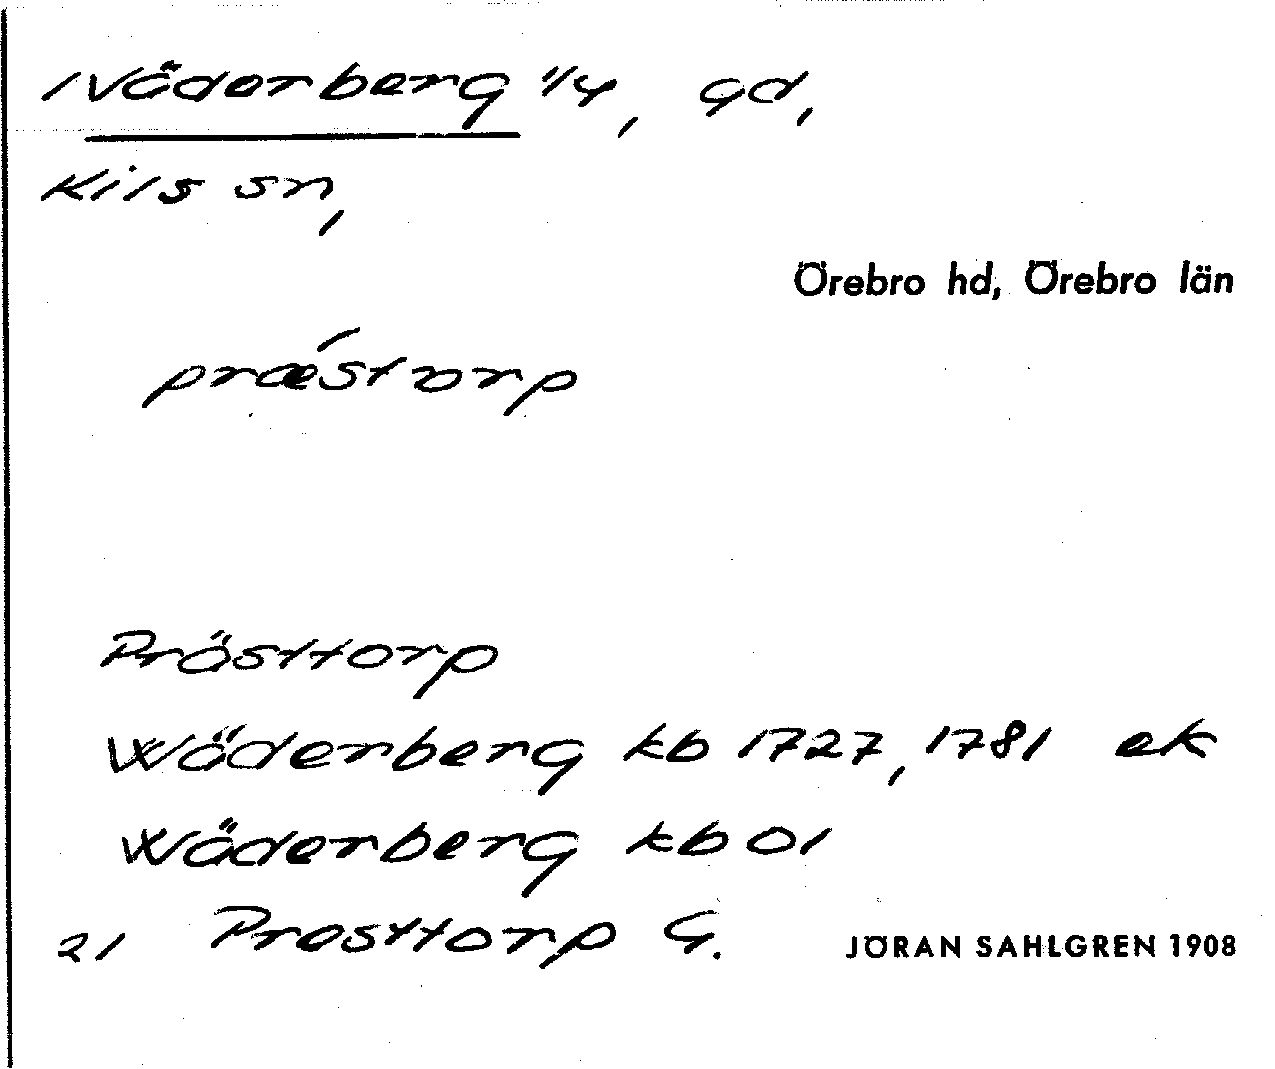 1 Väderberg 1/4, gd,
Kils sn,
Örebro hd, Örebro län
præ´storp
Prästtorp
Wäderberg kb 1727, 1781 ek
Wäderberg kb 01
21 Prosttorp G.
JÖRAN SAHLGREN 1908